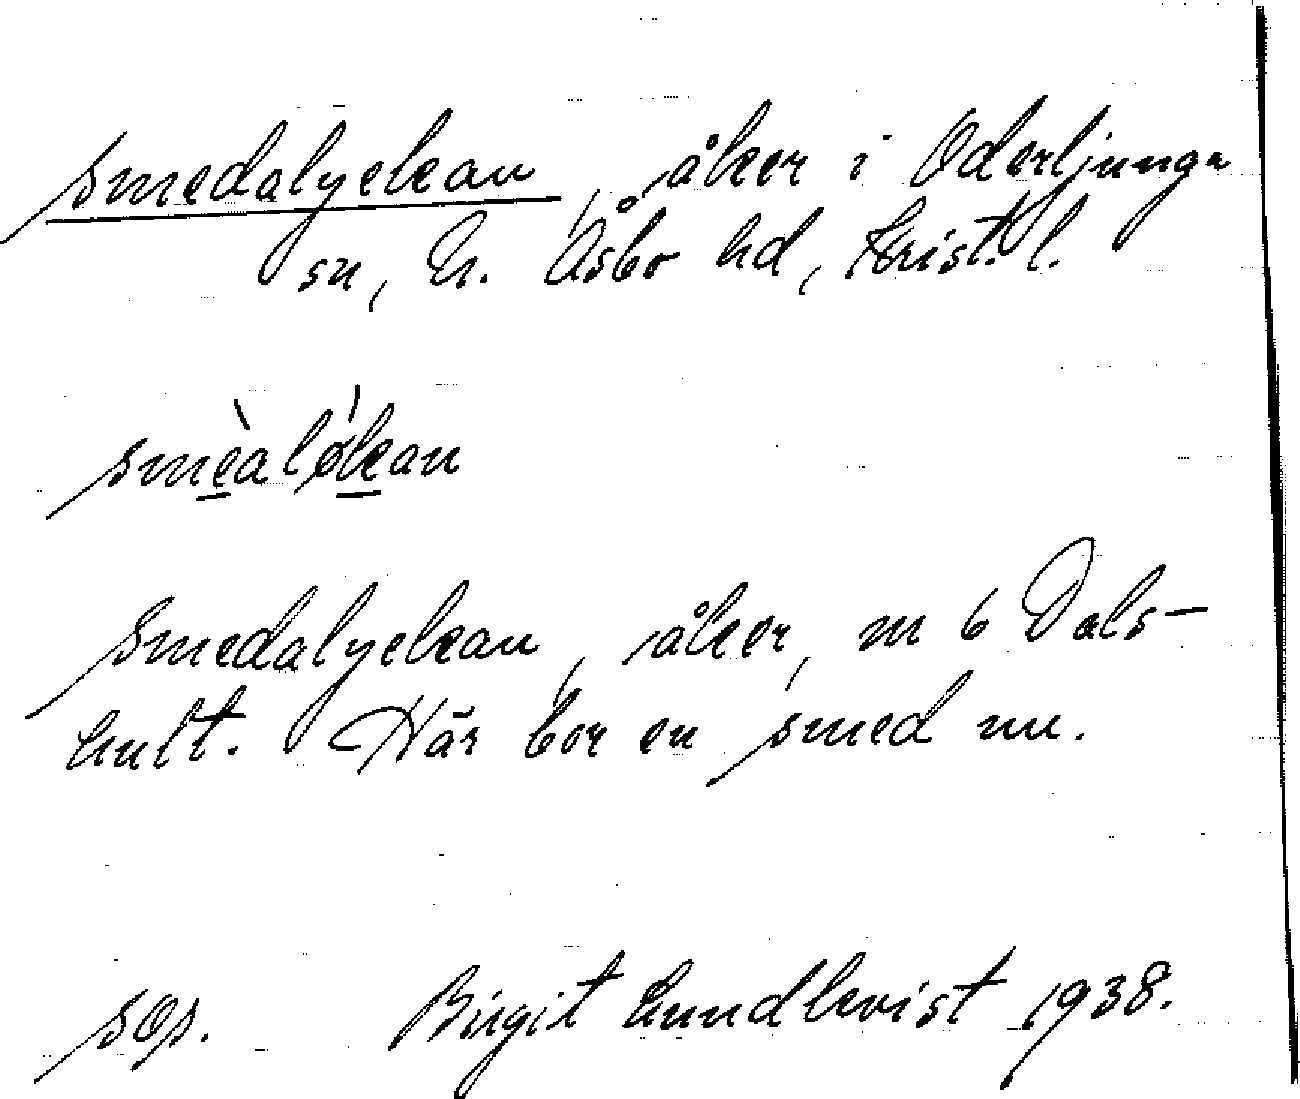 Smedalyckan, åker i Oderljunga
sn, N. Åsbo hd, Krist. l.
smèaløkan
Smedalyckan, åker, nr 6 Dals-
hult. Här bor en smed nu.
Birgit Lundkvist 1938.